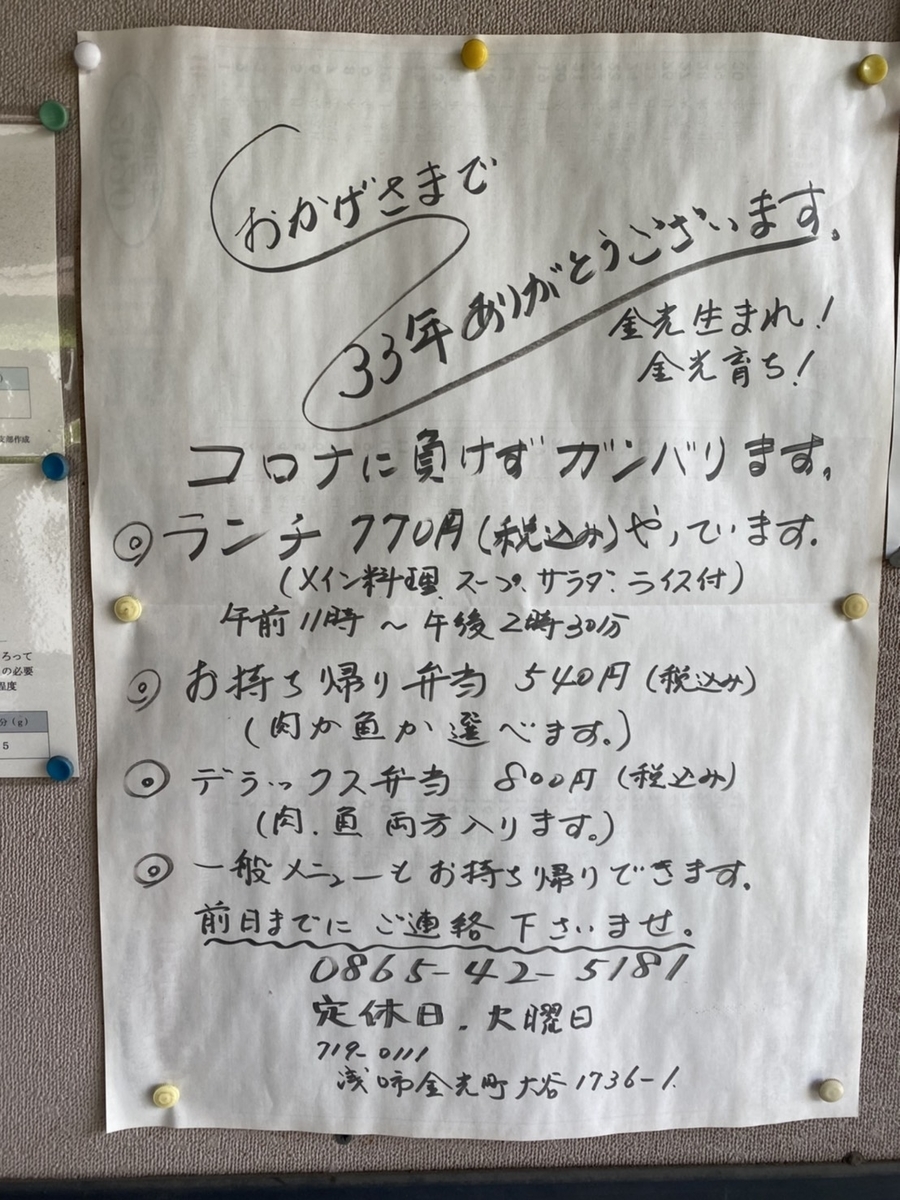 おかげさまで
33年ありがとうございます。
金光生まれ!
金光育ち!
コロナに負けずガンバリます。
◎ランチ 770円(税込み)やっています。
(メイン料理、スープ、サラダ、ライス付)
午前11時〜午後2時30分
◎お持ち帰り弁当 540円(税込み)
(肉か魚か選べます。)
◎デラックス弁当 800円(税込み)
(肉、魚 両方入ります。)
◎一般メニューもお持ち帰りできます。
前日までにご連絡下さいませ。
0865-42-5181
定休日.火曜日
719-0111
浅口市金光町大谷1736-1.
支部作成
ろって
の必要
程度
分(g)
5